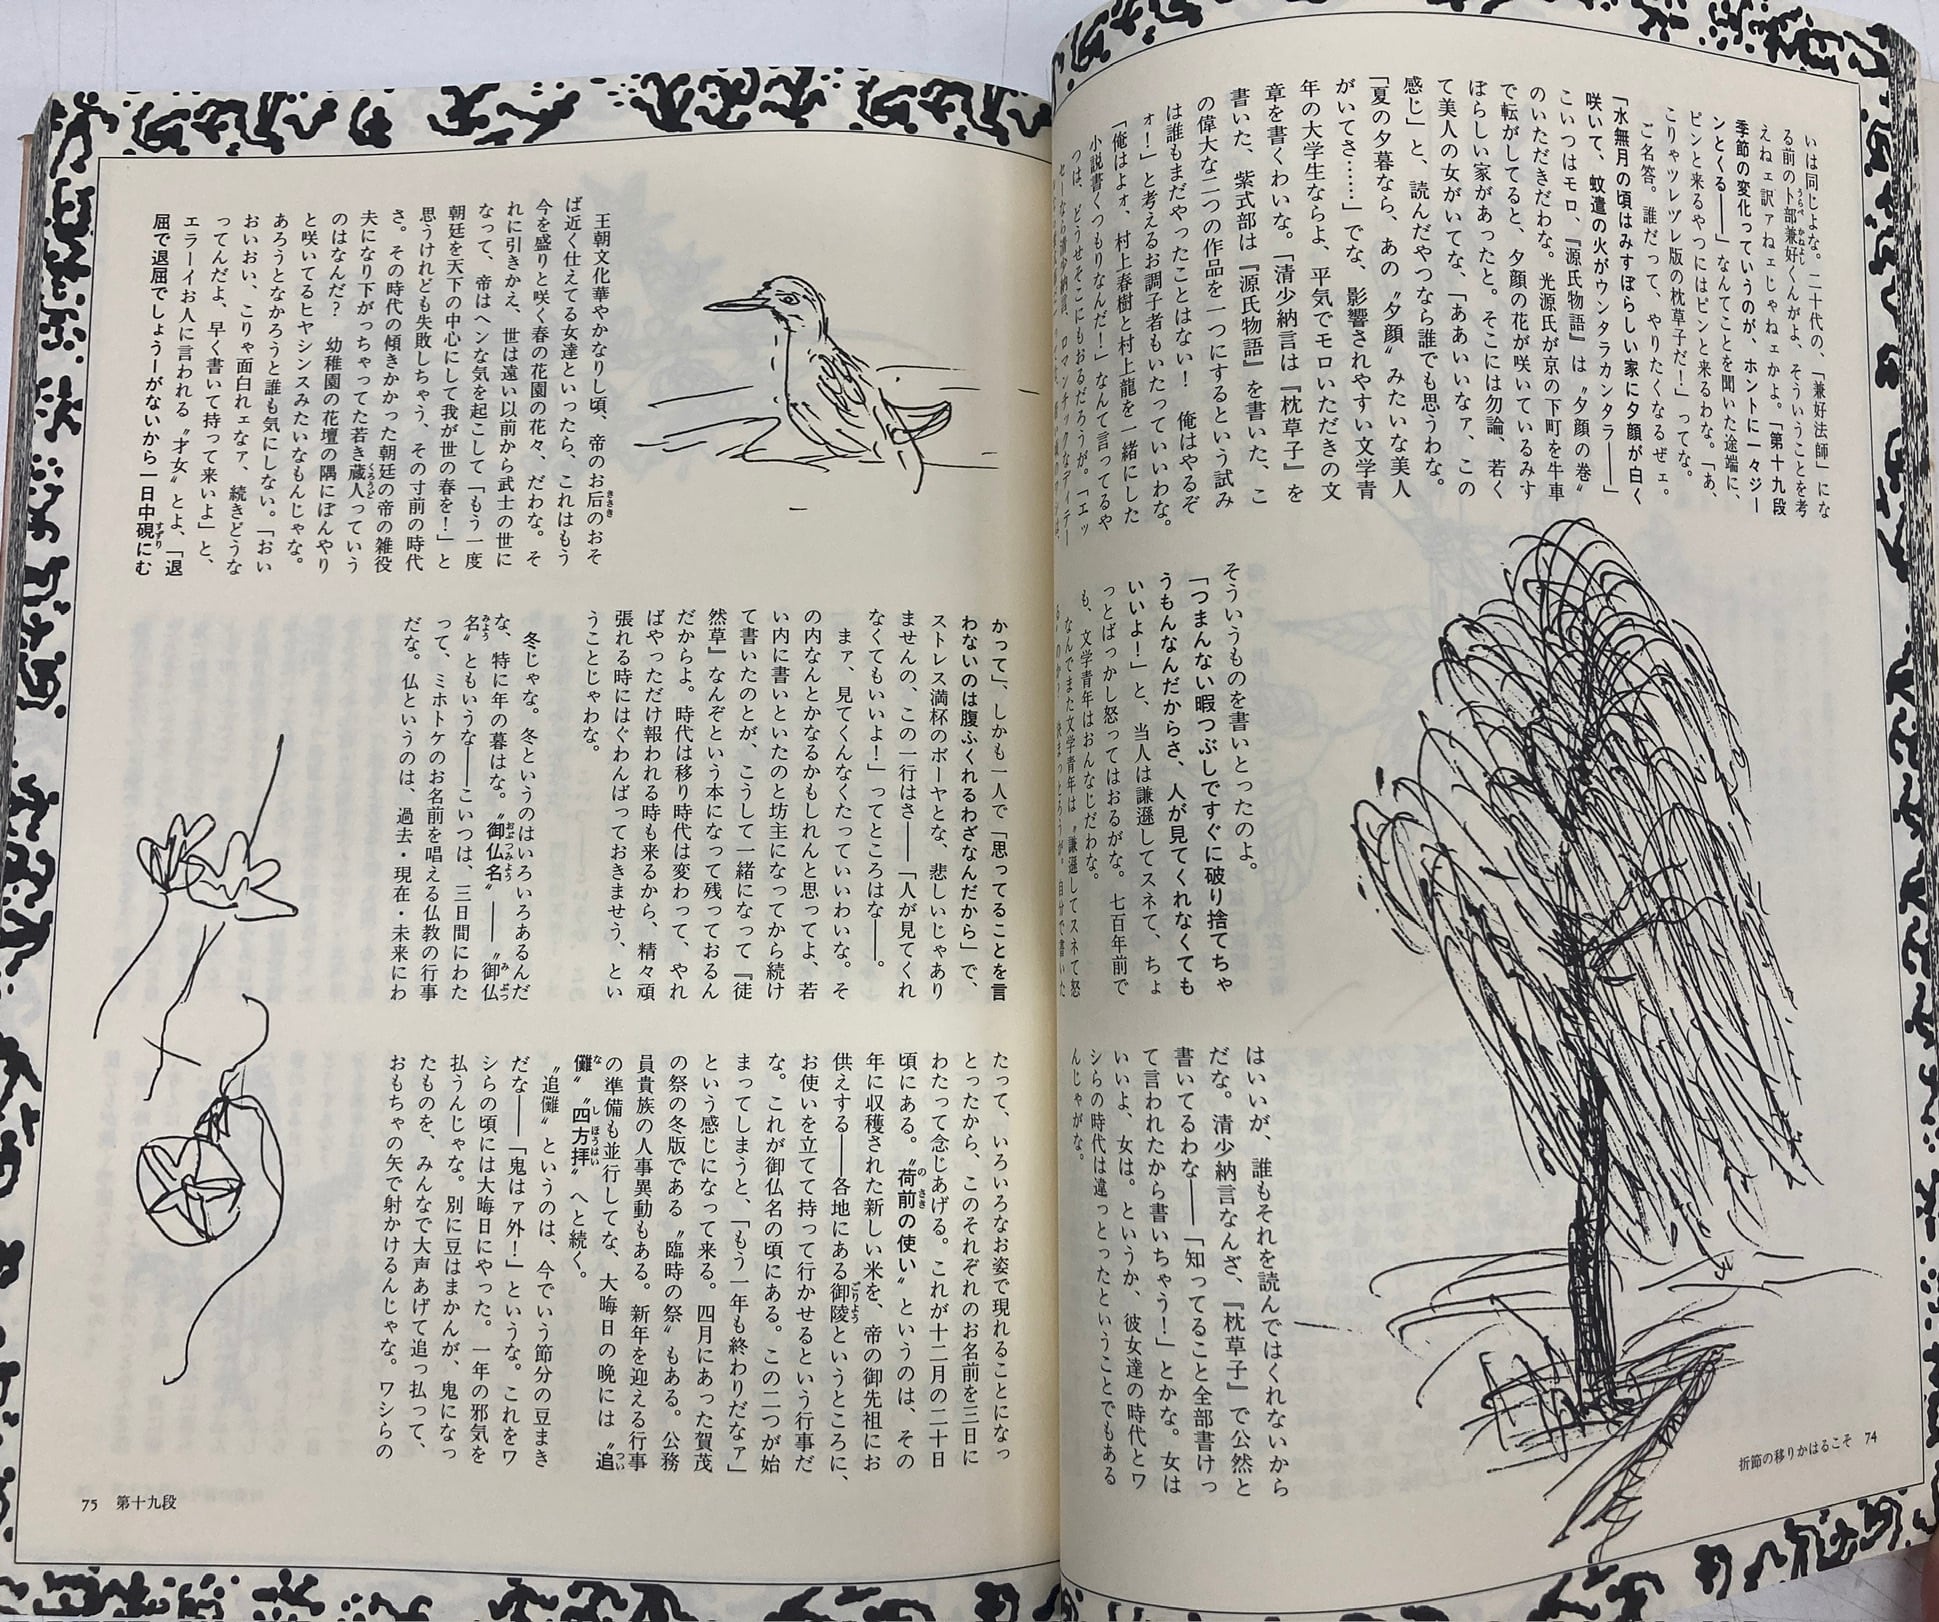 いは同じよな。二十代の、「兼好法師」にな
る前の卜部兼好くんがよ、そういうことを考
えねェ訳ァねェじゃねェかよ。「第十九段
季節の変化っていうのが、ホントに一々ジー
ンとくる——」なんてことを聞いた途端に、
ピンと来るやつにはピンと来るわな。「あ、
こりゃツレヅレ版の枕草子だ！」ってな。
ご名答。誰だって、やりたくなるぜェ。
「水無月の頃はみすぼらしい家に夕顔が白く
咲いて、蚊遣の火がウンタラカンタラ——」
こいつはモロ、『源氏物語』は〝夕顔の巻〟
のいただきだわな。光源氏が京の下町を牛車
で転がしてると、夕顔の花が咲いているみす
ぼらしい家があったと。そこには勿論、若く
て美人の女がいてな、「ああいいなァ、この
感じ」と、読んだやつなら誰でも思うわな。
「夏の夕暮なら、あの〝夕顔〟みたいな美人
がいてさ……」でな、影響されやすい文学青
年の大学生ならよ、平気でモロいただきの文
章を書くわいな。「清少納言は『枕草子』を
書いた、紫式部は『源氏物語』を書いた、こ
の偉大な二つの作品を一つにするという試み
は誰もまだやったことはない！　俺はやるぞ
ォ！」と考えるお調子者もいたっていいわな。
「俺はよォ、村上春樹と村上龍を一緒にした
小説書くつもりなんだ！」なんて言ってるや
つは、どうせそこにもおるだろうが。「エッ
そういうものを書いとったのよ。
「つまんない暇つぶしですぐに破り捨てちゃ
うもんなんだからさ、人が見てくれなくても
いいよ！」と、当人は謙遜してスネて、ちょ
っとばっかし怒ってはおるがな。七百年前で
も、文学青年はおんなじだわな。
なんでまた文学青年は〝謙遜してスネて怒
はいいが、誰もそれを読んではくれないから
だな。清少納言なんざ、『枕草子』で公然と
書いてるわな——「知ってること全部書けっ
て言われたから書いちゃう！」とかな。女は
いいよ、女は。というか、彼女達の時代とワ
シらの時代は違っとったということでもある
んじゃがな。
折節の移りかはるこそ　74
王朝文化華やかなりし頃、帝のお后のおそ
ば近く仕えてる女達といったら、これはもう
今を盛りと咲く春の花園の花々、だわな。そ
れに引きかえ、世は遠い以前から武士の世に
なって、帝はヘンな気を起こして「もう一度
朝廷を天下の中心にして我が世の春を！」と
思うけれども失敗しちゃう、その寸前の時代
さ。その時代の傾きかかった朝廷の帝の雑役
夫になり下がっちゃってた若き蔵人っていう
のはなんだ？　幼稚園の花壇の隅にぼんやり
と咲いてるヒヤシンスみたいなもんじゃな。
あろうとなかろうと誰も気にしない。「おい
おいおい、こりゃ面白れェなァ、続きどうな
ってんだよ、早く書いて持って来いよ」と、
エラーイお人に言われる〝才女〟とよ、「退
屈で退屈でしょうーがないから一日中硯にむ
かって」、しかも一人で「思ってることを言
わないのは腹ふくれるわざなんだから」で、
ストレス満杯のボーヤとな、悲しいじゃあり
ませんの、この一行はさ——「人が見てくれ
なくてもいいよ！」ってところはな——。
まァ、見てくんなくたっていいわいな。そ
の内なんとかなるかもしれんと思ってよ、若
い内に書いといたのと坊主になってから続け
て書いたのとが、こうして一緒になって『徒
然草』なんぞという本になって残っておるん
だからよ。時代は移り時代は変わって、やれ
ばやっただけ報われる時も来るから、精々頑
張れる時にはぐわんばっておきませう、とい
うことじゃわな。
冬じゃな。冬というのはいろいろあるんだ
な、特に年の暮はな。〝御仏名〟——〝御仏
名〟ともいうな——こいつは、三日間にわた
って、ミホトケのお名前を唱える仏教の行事
だな。仏というのは、過去・現在・未来にわ
たって、いろいろなお姿で現れることになっ
とったから、このそれぞれのお名前を三日に
わたって念じあげる。これが十二月の二十日
頃にある。〝荷前の使い〟というのは、その
年に収穫された新しい米を、帝の御先祖にお
供えする——各地にある御陵というところに、
お使いを立てて持って行かせるという行事だ
な。これが御仏名の頃にある。この二つが始
まってしまうと、「もう一年も終わりだなァ」
という感じになって来る。四月にあった賀茂
の祭の冬版である〝臨時の祭〟もある。公務
員貴族の人事異動もある。新年を迎える行事
の準備も並行してな、大晦日の晩には〝追
儺〟〝四方拝〟へと続く。
〝追儺〟というのは、今でいう節分の豆まき
だな——「鬼はァ外！」というな。これをワ
シらの頃には大晦日にやった。一年の邪気を
払うんじゃな。別に豆はまかんが、鬼になっ
たものを、みんなで大声あげて追っ払って、
おもちゃの矢で射かけるんじゃな。ワシらの
75　第十九段